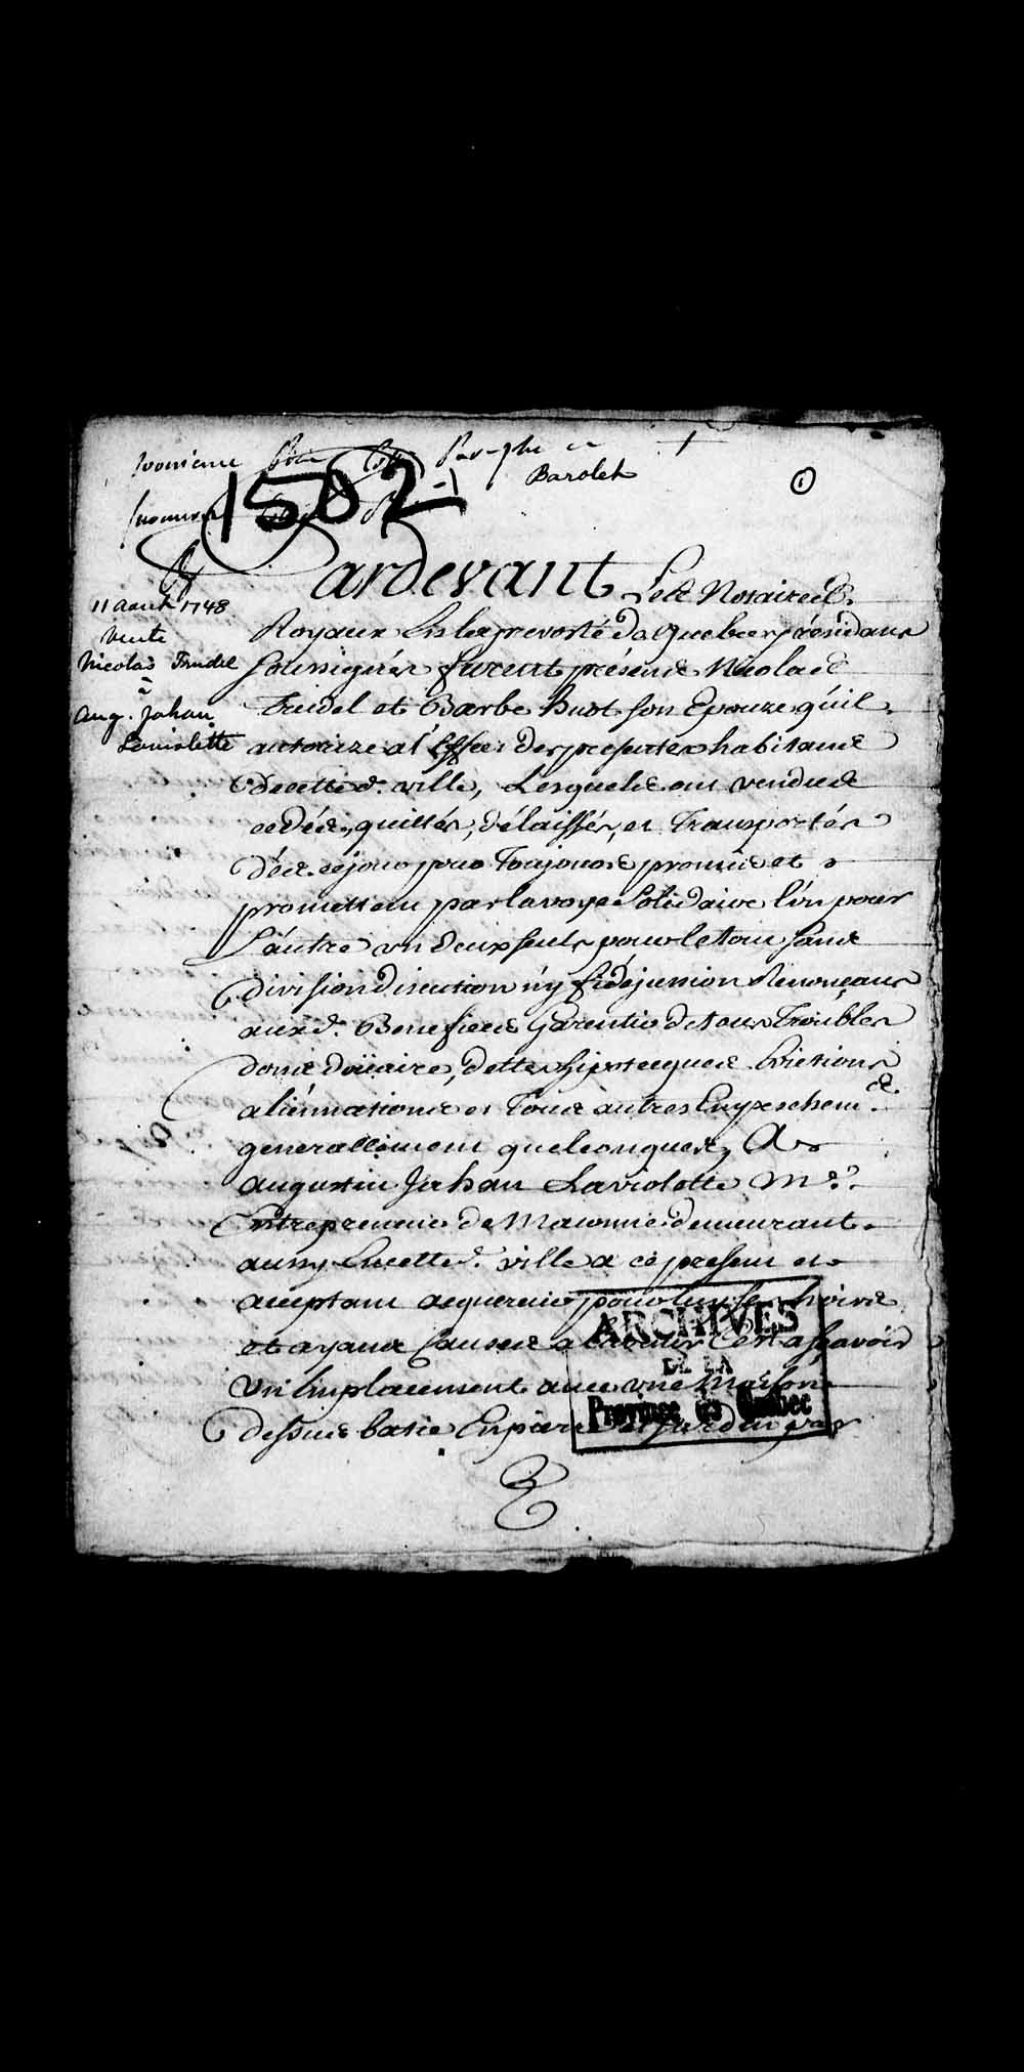 Paraphe
Barolet
1
1502
Pardevant Les Notaires
11 aout 1748
Vente
Nicolas Trudel
à
Aug. Jahan
Laviolette
Royaux En la prevosté de Quebec y résidans
soussignés furent présens Nicolas
Trudel et Barbe Buot son Epouze qu'il
autorize a l'Effet des presentes habitans
de cette d. ville, Lesquels ont vendus
cedés, quittés, délaissés, et Transportés
dès ce jour pour Toujours promis et
promettent par la voye Solidaire l'un pour
L'autre un deux seuls pour le tout sans
division discution n'y fidejussion Renonçans
aux d. Benefices Garentir de tous Troubles
dons doüaire, dettes hipotecques Evictions
aliénnations et Tous autres Empeschem.
generallement quelconques, A
augustin Jahan Laviolette M.
Entrepreneur de Maconnie demeurant
aussy En cette d. ville a ce present et
acceptant acquereur pour luy ses hoirs
et ayans Causes a l'avenir C'est a sçavoir
Un Emplacement avec une Maison
dessus batie En pierre et jardin par
ARCHIVES
DE LA
Province de Québec